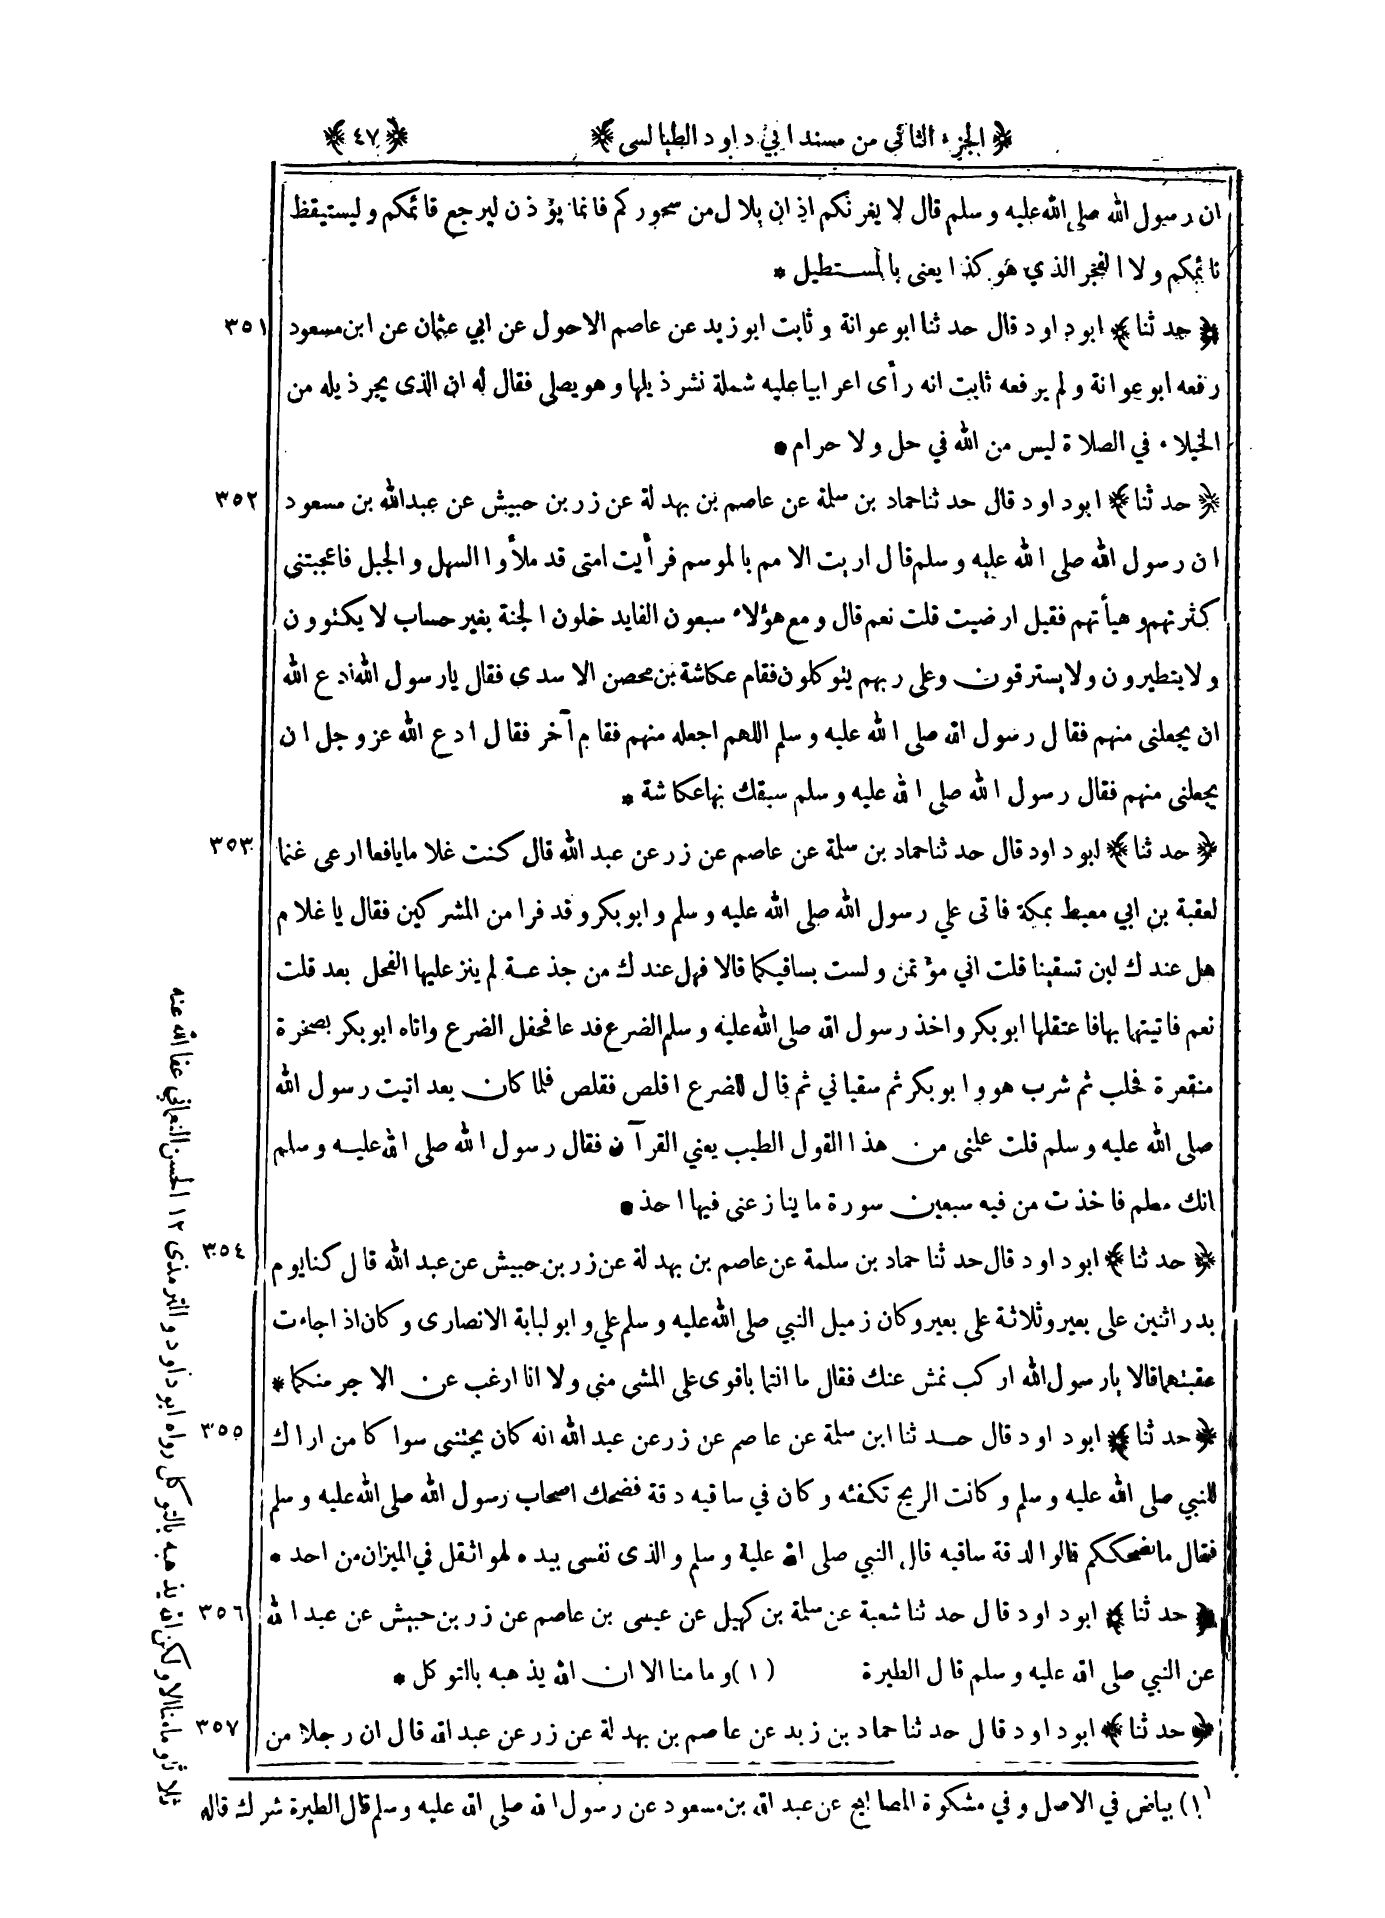 ﴿ الجزء الثاني من مسند ابي داود الطيالسي ﴾ ﴿ ٤٧ ﴾
ان رسول الله صلى الله عليه وسلم قال لا يغرنكم اذان بلال من سحوركم فانما يؤذن ليرجع قائمكم وليستيقظ
نائمكم ولا الفجر الذي هو كذا يعنى بالمستطيل *
٣٥١ ﴿ حدثنا ﴾ ابو داود قال حدثنا ابو عوانة وثابت ابو زيد عن عاصم الاحول عن ابي عثمان عن ابن مسعود
رفعه ابو عوانة ولم يرفعه ثابت انه رأى اعرابيا عليه شملة نشر ذيلها وهو يصلى فقال له ان الذى يجر ذيله من
الخيلاء في الصلاة ليس من الله في حل ولا حرام *
٣٥٢ ﴿ حدثنا ﴾ ابو داود قال حدثنا حماد بن سلمة عن عاصم بن بهدلة عن زر بن حبيش عن عبد الله بن مسعود
ان رسول الله صلى الله عليه وسلم قال اريت الامم بالموسم فرأيت امتى قد ملأوا السهل والجبل فاعجبتنى
كثرتهم وهيأتهم فقيل ارضيت قلت نعم قال ومع هؤلاء سبعون الفا يدخلون الجنة بغير حساب لا يكتوون
ولا يتطيرون ولا يسترقون وعلى ربهم يتوكلون فقام عكاشة بن محصن الاسدى فقال يا رسول الله ادع الله
ان يجعلنى منهم فقال رسول الله صلى الله عليه وسلم اللهم اجعله منهم فقام آخر فقال ادع الله عز وجل ان
يجعلنى منهم فقال رسول الله صلى الله عليه وسلم سبقك بها عكاشة *
٣٥٣ ﴿ حدثنا ﴾ ابو داود قال حدثنا حماد بن سلمة عن عاصم عن زر عن عبد الله قال كنت غلاما يافعا ارعى غنما
لعقبة بن ابي معيط بمكة فاتى علي رسول الله صلى الله عليه وسلم وابو بكر وقد فرا من المشركين فقال يا غلام
هل عندك لبن تسقينا قلت اني مؤتمن ولست بساقيكما قالا فهل عندك من جذعة لم ينز عليها الفحل بعد قلت
نعم فاتيتهما بها فاعتقلها ابو بكر واخذ رسول الله صلى الله عليه وسلم الضرع فدعا فحفل الضرع واتاه ابو بكر بصخرة
منقعرة فحلب ثم شرب هو وابو بكر ثم سقياني ثم قال للضرع اقلص فقلص فلما كان بعد اتيت رسول الله
صلى الله عليه وسلم قلت علمنى من هذا القول الطيب يعني القرآن فقال رسول الله صلى الله عليه وسلم
انك معلم فاخذت من فيه سبعين سورة ما ينازعنى فيها احد *
٣٥٤ ﴿ حدثنا ﴾ ابو داود قال حدثنا حماد بن سلمة عن عاصم بن بهدلة عن زر بن حبيش عن عبد الله قال كنا يوم
بدر اثنين على بعير وثلاثة على بعير وكان زميل النبي صلى الله عليه وسلم علي وابو لبابة الانصارى وكان اذا جاءت
عقبتهما قالا يا رسول الله اركب نمش عنك فقال ما انتما باقوى على المشى منى ولا انا ارغب عن الاجر منكما *
٣٥٥ ﴿ حدثنا ﴾ ابو داود قال حدثنا ابن سلمة عن عاصم عن زر عن عبد الله انه كان يجتنى سواكا من اراك
للنبي صلى الله عليه وسلم وكانت الريح تكفئه وكان في ساقيه دقة فضحك اصحاب رسول الله صلى الله عليه وسلم
فقال ما يضحككم قالوا لدقة ساقيه قال النبي صلى الله عليه وسلم والذى نفسى بيده لهو اثقل في الميزان من احد *
٣٥٦ ﴿ حدثنا ﴾ ابو داود قال حدثنا شعبة عن سلمة بن كهيل عن عيسى بن عاصم عن زر بن حبيش عن عبد الله
عن النبي صلى الله عليه وسلم قال الطيرة (١) وما منا الا ان الله يذهبه بالتوكل *
٣٥٧ ﴿ حدثنا ﴾ ابو داود قال حدثنا حماد بن زيد عن عاصم بن بهدلة عن زر عن عبد الله قال ان رجلا من
(١) بياض في الاصل وفي مشكوة المصابيح عن عبد الله بن مسعود عن رسول الله صلى الله عليه وسلم قال الطيرة شرك قاله
ثلاثا وما منا الا ولكن الله يذهبه بالتوكل رواه ابو داود والترمذى ١٢ الحسن النعماني عفا الله عنه